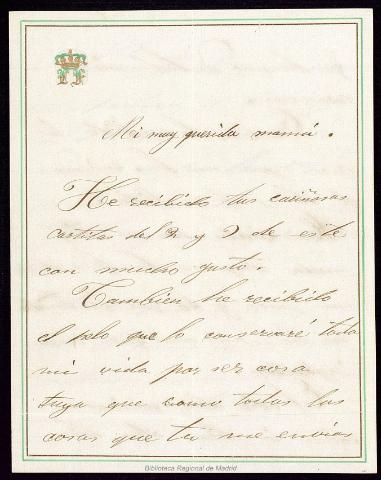 Mi muy querida mamá.
He recibido tus cariñosas
cartitas del 2 y 9 de este
con mucho gusto.
Tambien he recibido
el pelo que lo conservaré toda
mi vida por ser cosa
tuya que como todas las
cosas que tu me envias
Biblioteca Regional de Madrid